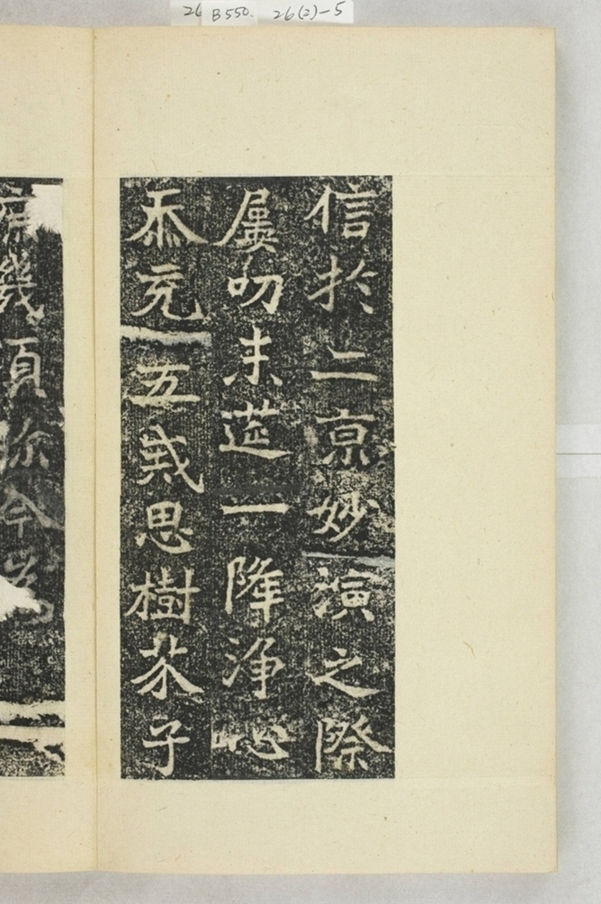 26 B550. 26(2)-5
信扵二京妙演之際
屢叨末莚一降淨心
忝充五戒思樹芥子
庶幾須弥今為